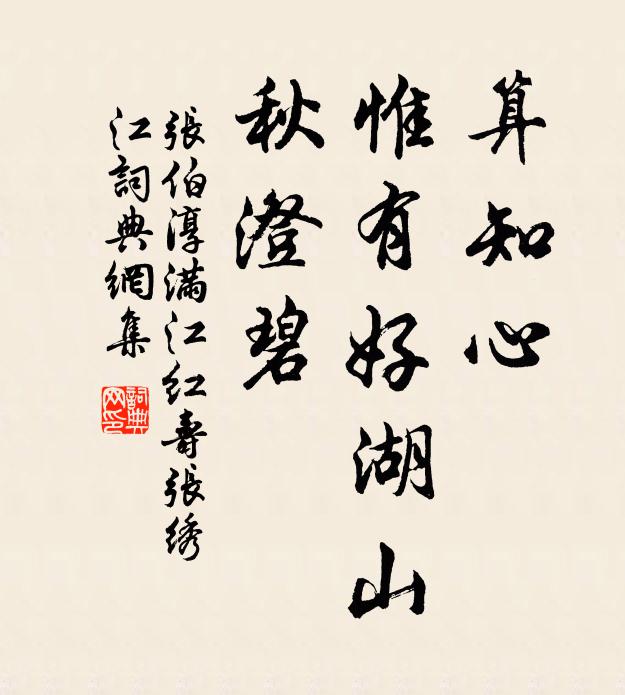 算知心
惟有好湖山
秋澄碧
張伯淳滿江紅壽張绣
江詞典網集
詞典
网印